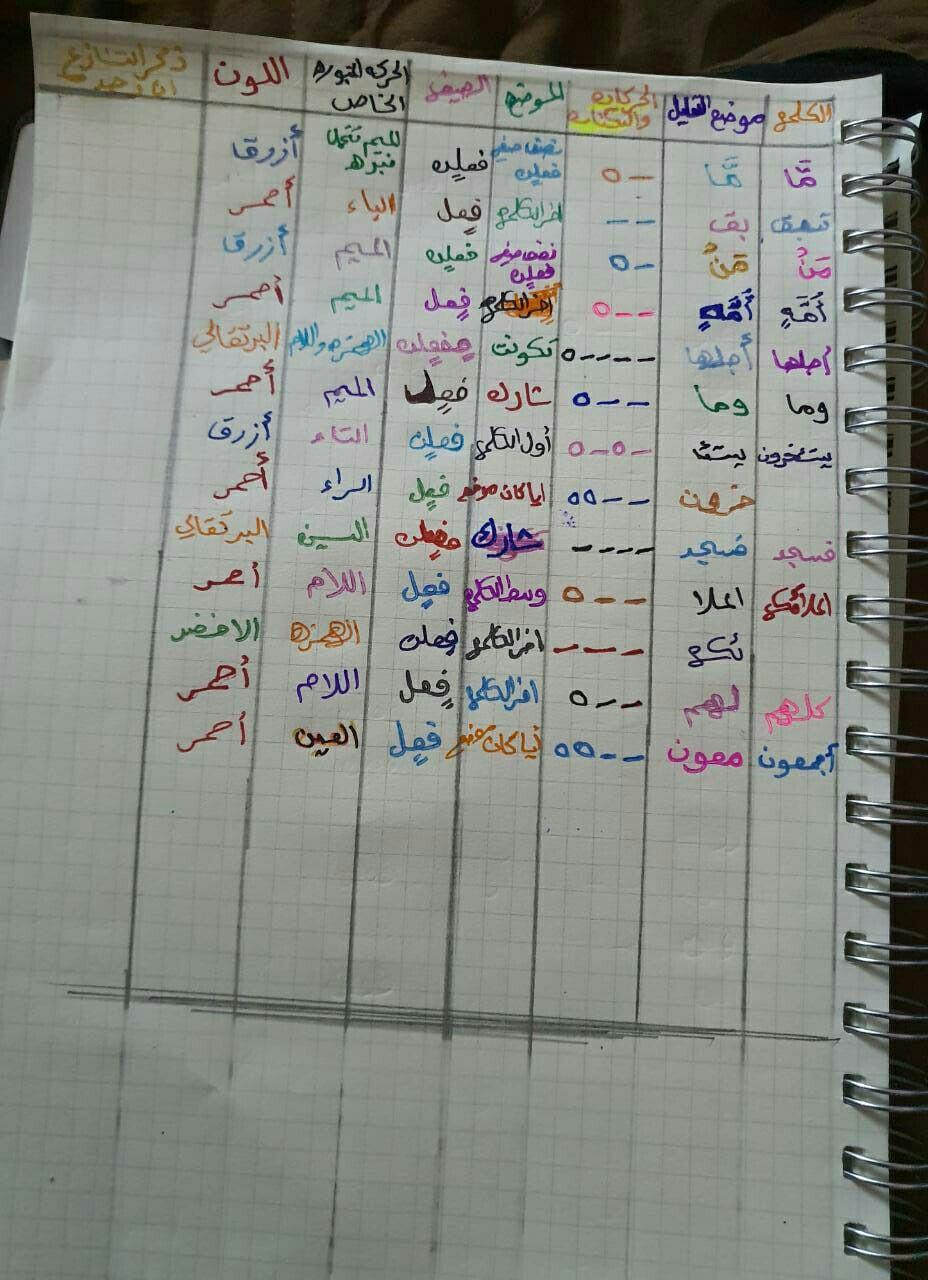 الكلمه موضع التعليل الحركات والسكنات الموضع الصيغه الحركه المنبوره الخاص اللون ذكر التنازع ان وجد
مَّا مَّا -ه نصف صيغه فعلن فعلن الميم تحمل نبره أزرقا
تبق بق -- اخر الكلمه فعل الباء أحمر
مَنْ مَنْ -ه نصف صيغه فعلن فعلن الميم أزرقا
أمَّةٍ أمَّةٍ --ه اخر الكلمه فعل الميم أحمر
أجلها أجلها ----ه تكونت الهمزه والام البرتقالي
وما وما --ه شارك فعل الميم أحمر
يستئخرون يستئا -ه-ه أول الكلمه فعلن التاء أزرقا
خرون --هه ايا كان موضعه فعل الراء أحمر
فسجد فسجد ---- شارك السين البركقالي
الملائكه الملا --ه وسط الكلمه فعل اللام أحمر
ئكه --- اخر الكلمه فعلن الهمزه الاخضر
كلهم لهم --ه اخر الكلمه فعل اللام أحمر
أجمعون معون --هه فعل العين أحمر